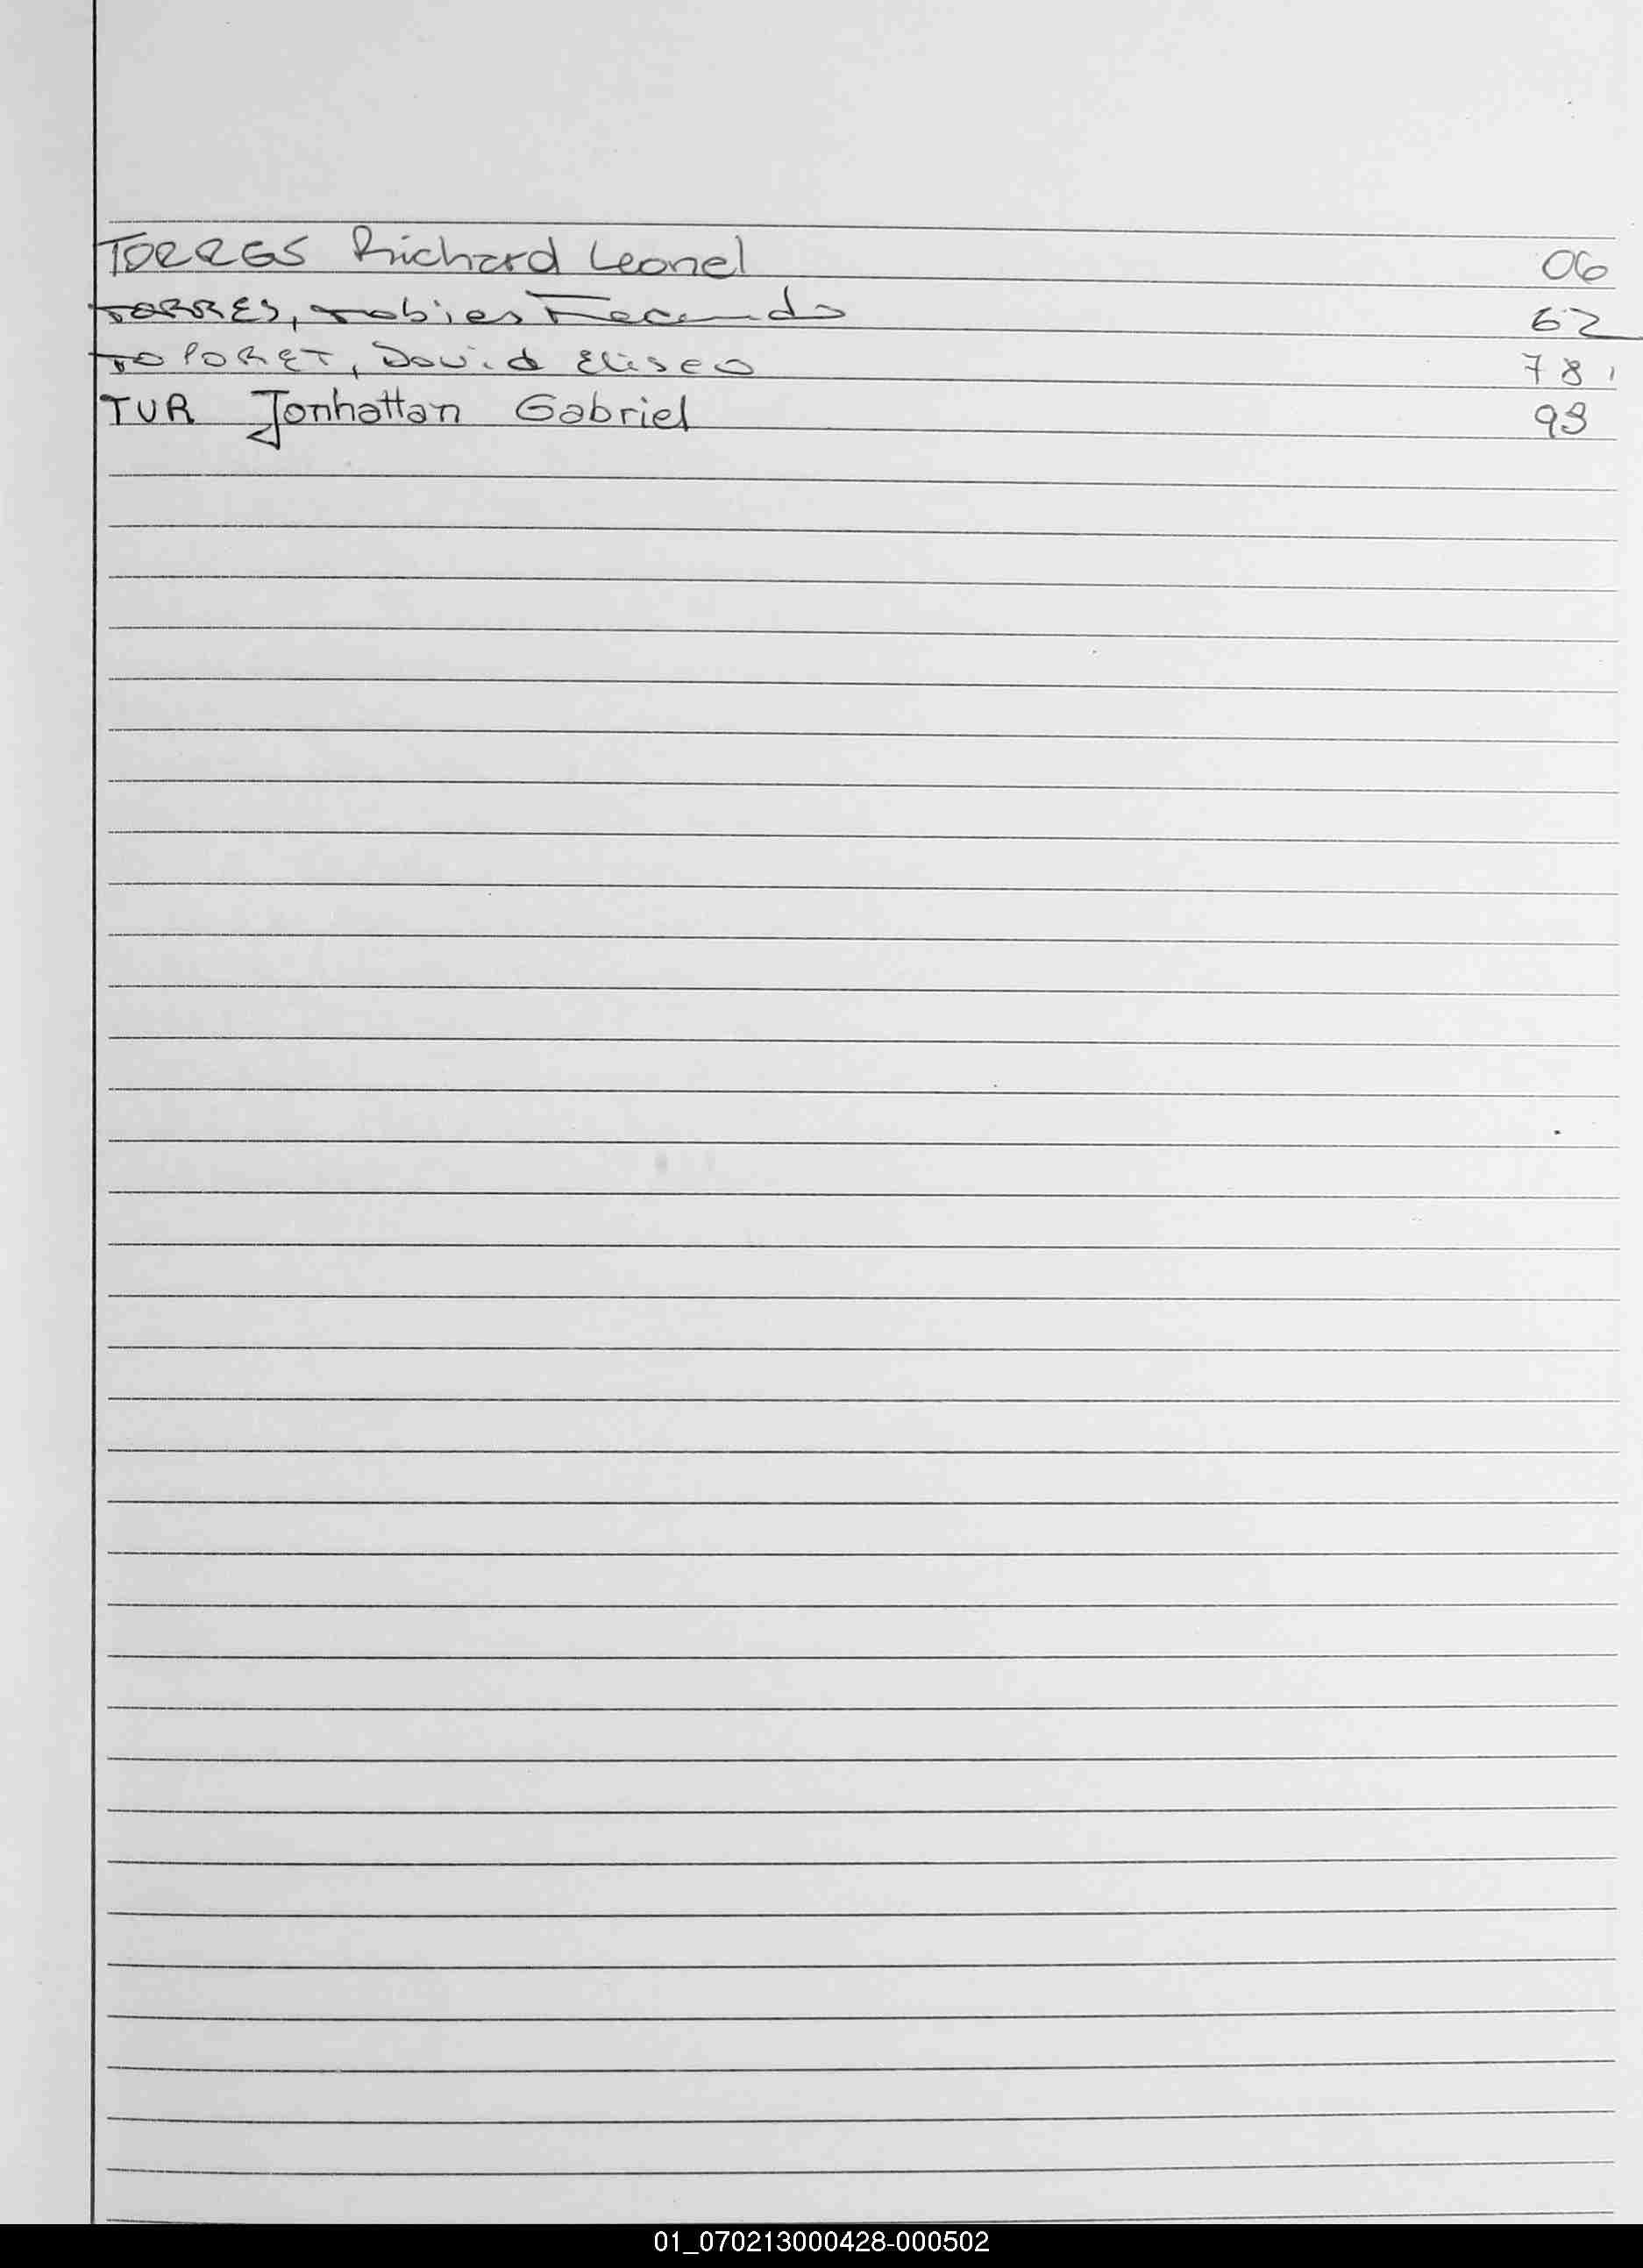 TORRES Richard Leonel 06
TORRES, Tobias Facundo 62
TOPORET, David Eliseo 78
TUR Jonhattan Gabriel 93
01_070213000428-000502